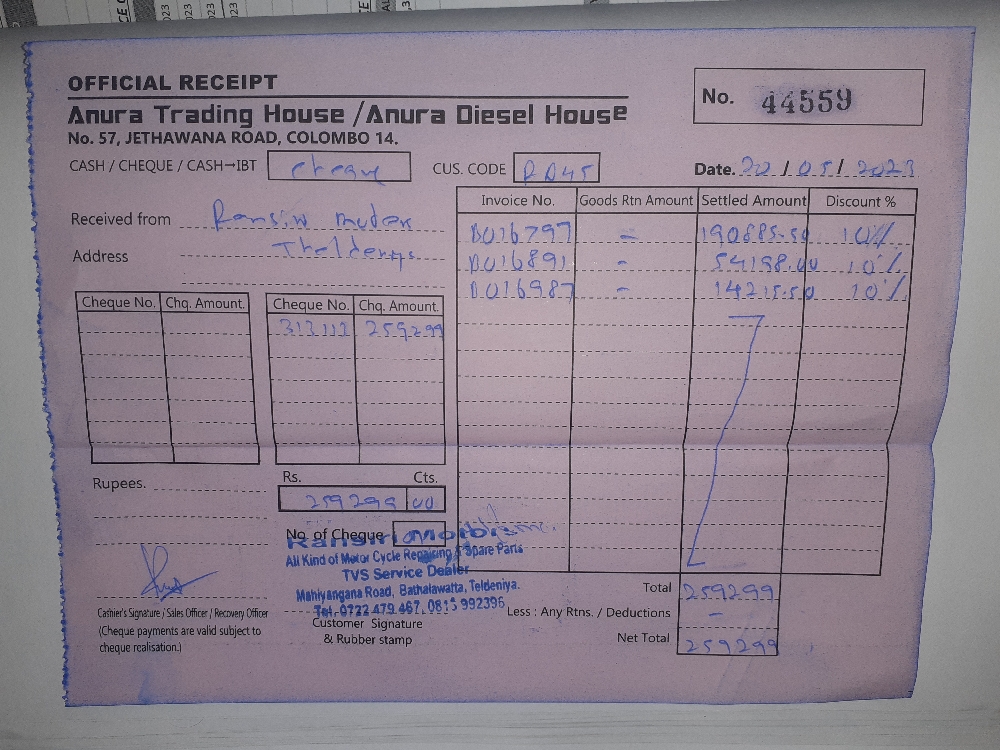 OFFICIAL RECEIPT
No. 44559
Anura Trading House /Anura Diesel House
No. 57, JETHAWANA ROAD, COLOMBO 14.
CASH / CHEQUE / CASH→IBT cheque CUS. CODE RD45 Date. 20 / 05 / 2023
Received from Ransiri
Address
Invoice No. Goods Rtn Amount Settled Amount Discount %
B016797 - 190885.50 10%
B016891 - 54198.00 10%
B016987 - 14215.50 10%
Cheque No. Chq. Amount. Cheque No. Chq. Amount.
313112 259299
Rupees.
Rs. Cts.
259299 00
No. of Cheque
Ransiri
All Kind of Motor Cycle Repairing & Spare Parts
TVS Service Dealer
Mahiyangana Road, Bathalawatta, Teldeniya.
Tel. 0722 479 467, 0815 992396
Cashier's Signature / Sales Officer / Recovery Officer
(Cheque payments are valid subject to
cheque realisation.)
Customer Signature
& Rubber stamp
Total 259299
Less : Any Rtns. / Deductions -
Net Total 259299